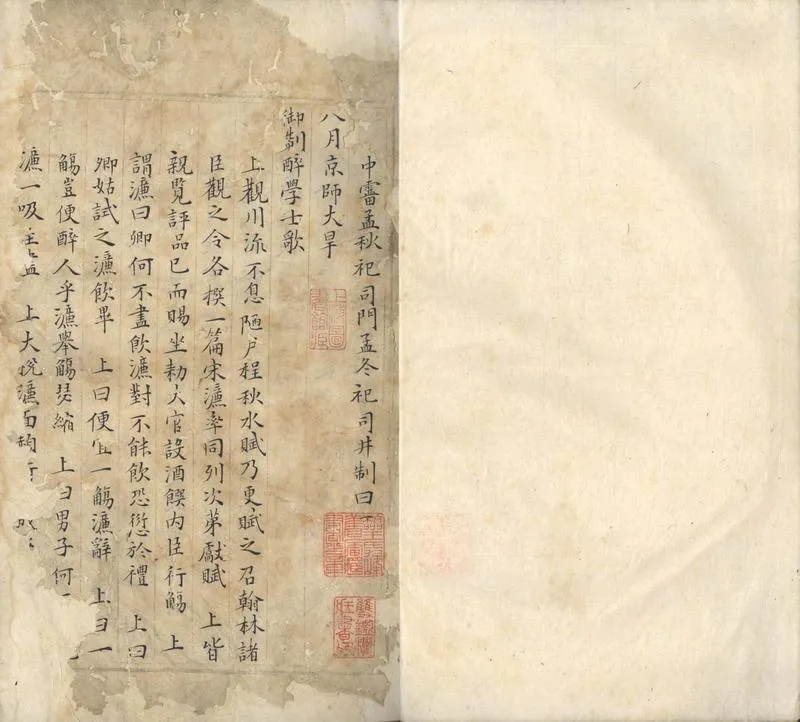 中霤孟秋祀司門孟冬祀司井制曰
八月京師大旱
御制醉學士歌
上觀川流不息陋户程秋水賦乃更賦之召翰林諸
臣觀之令各撰一篇宋濂率同列次第獻賦 上皆
親覽評品已而賜坐勑大官設酒饌内臣行觴 上
謂濂曰卿何不盡飲濂對不能飲恐愆於禮 上曰
卿姑試之濂飲畢 上曰便宜一觴濂辭 上曰一
觴豈便醉人乎濂舉觴縮 上曰男子何
濂一吸 上大悅濂